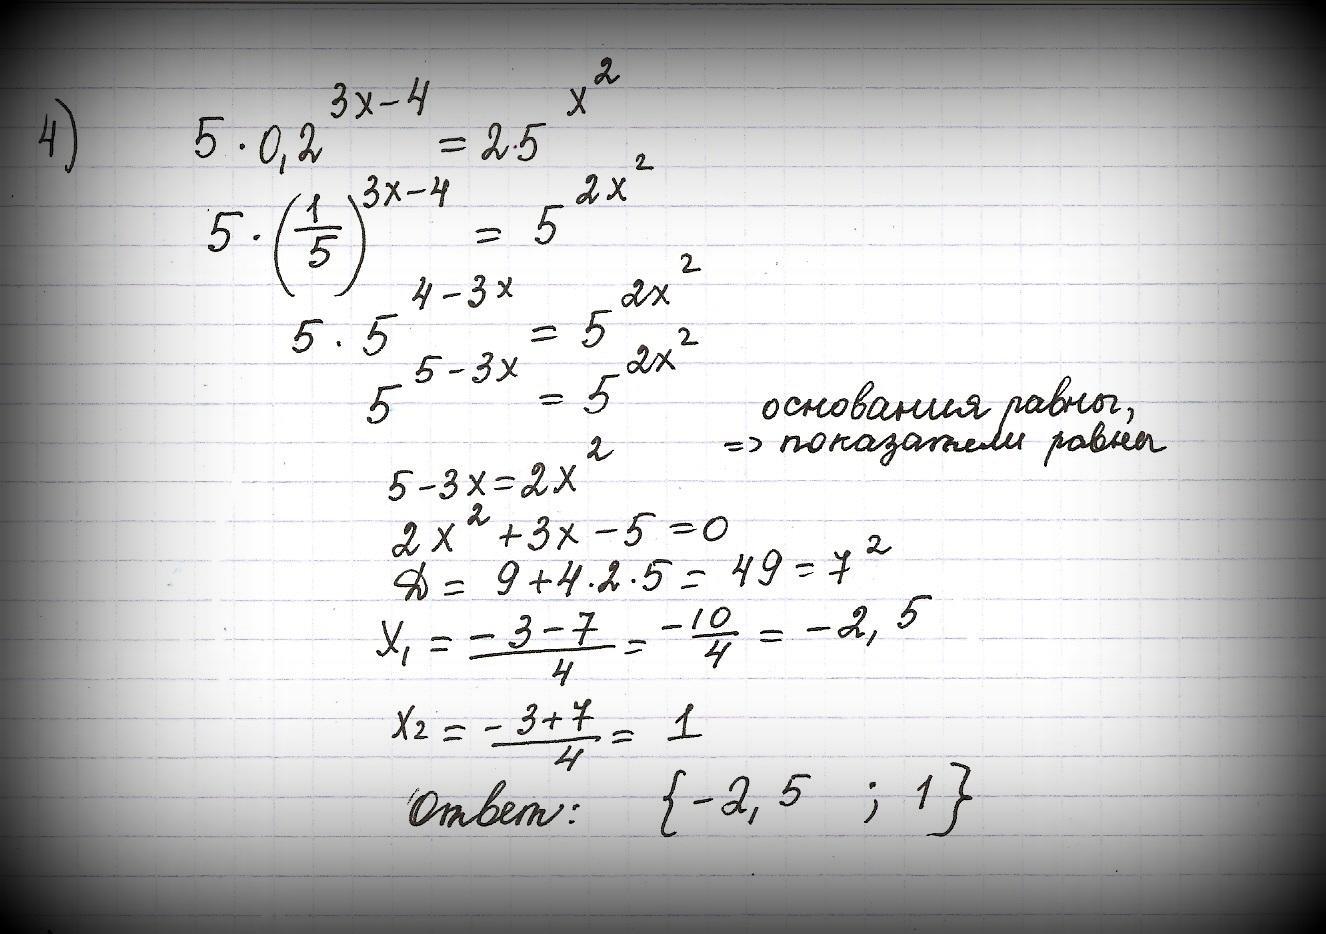 4) 5 · 0,2^(3x-4) = 2·5^(x^2)
5 · (1/5)^(3x-4) = 5^(2x^2)
5 · 5^(4-3x) = 5^(2x^2)
5^(5-3x) = 5^(2x^2)
основания равны,
=> показатели равны
5-3x=2x^2
2x^2+3x-5=0
D = 9+4·2·5= 49=7^2
x₁ = (-3-7)/4 = -10/4 = -2,5
x₂ = (-3+7)/4 = 1
Ответ: {-2,5 ; 1}